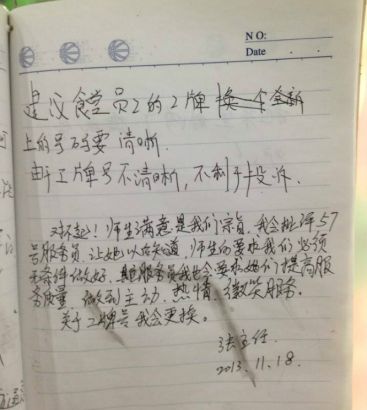 NO:
Date
建议食堂员工的工牌换一个全新
上的号码要清晰.
由于工牌号不清晰,不利于投诉.
对不起!师生满意是我们宗旨.我会批评57
号服务员,让她以后知道,师生的要求我们必须
无条件做好.服务员我也会要求她们提高服
务质量 做到主动、热情、微笑服务.
关于工牌号我会更换。
张主任.
2013.11.18.